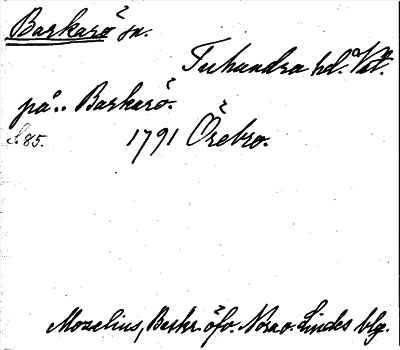 Barkarö sn.
Tuhundra hd. Vstl.
på.. Barkarö.
S. 85. 1791 Örebro.
Mozelius, Beskr. öfv. Nora o. Lindes blg.